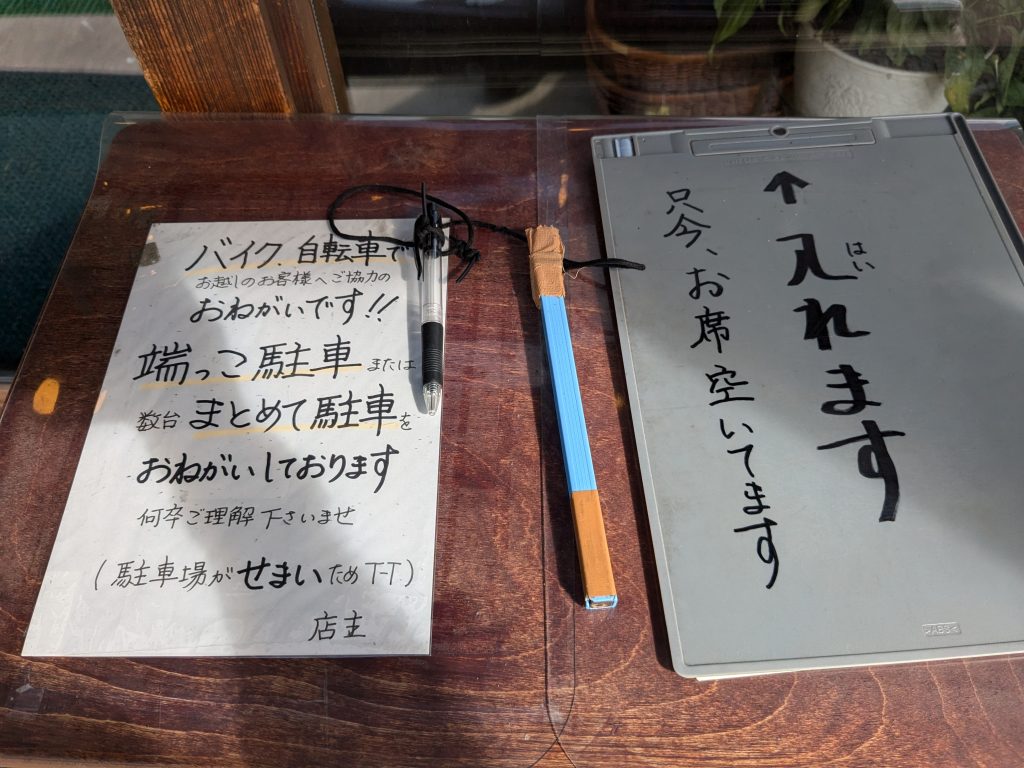 バイク、自転車で
お越しのお客様へご協力の
おねがいです!!
端っこ駐車 または
数台 まとめて駐車を
おねがいしております
何卒ご理解下さいませ
(駐車場がせまいため T-T)
店主
↑入れます
はい
只今、お席空いてます
>ABS<